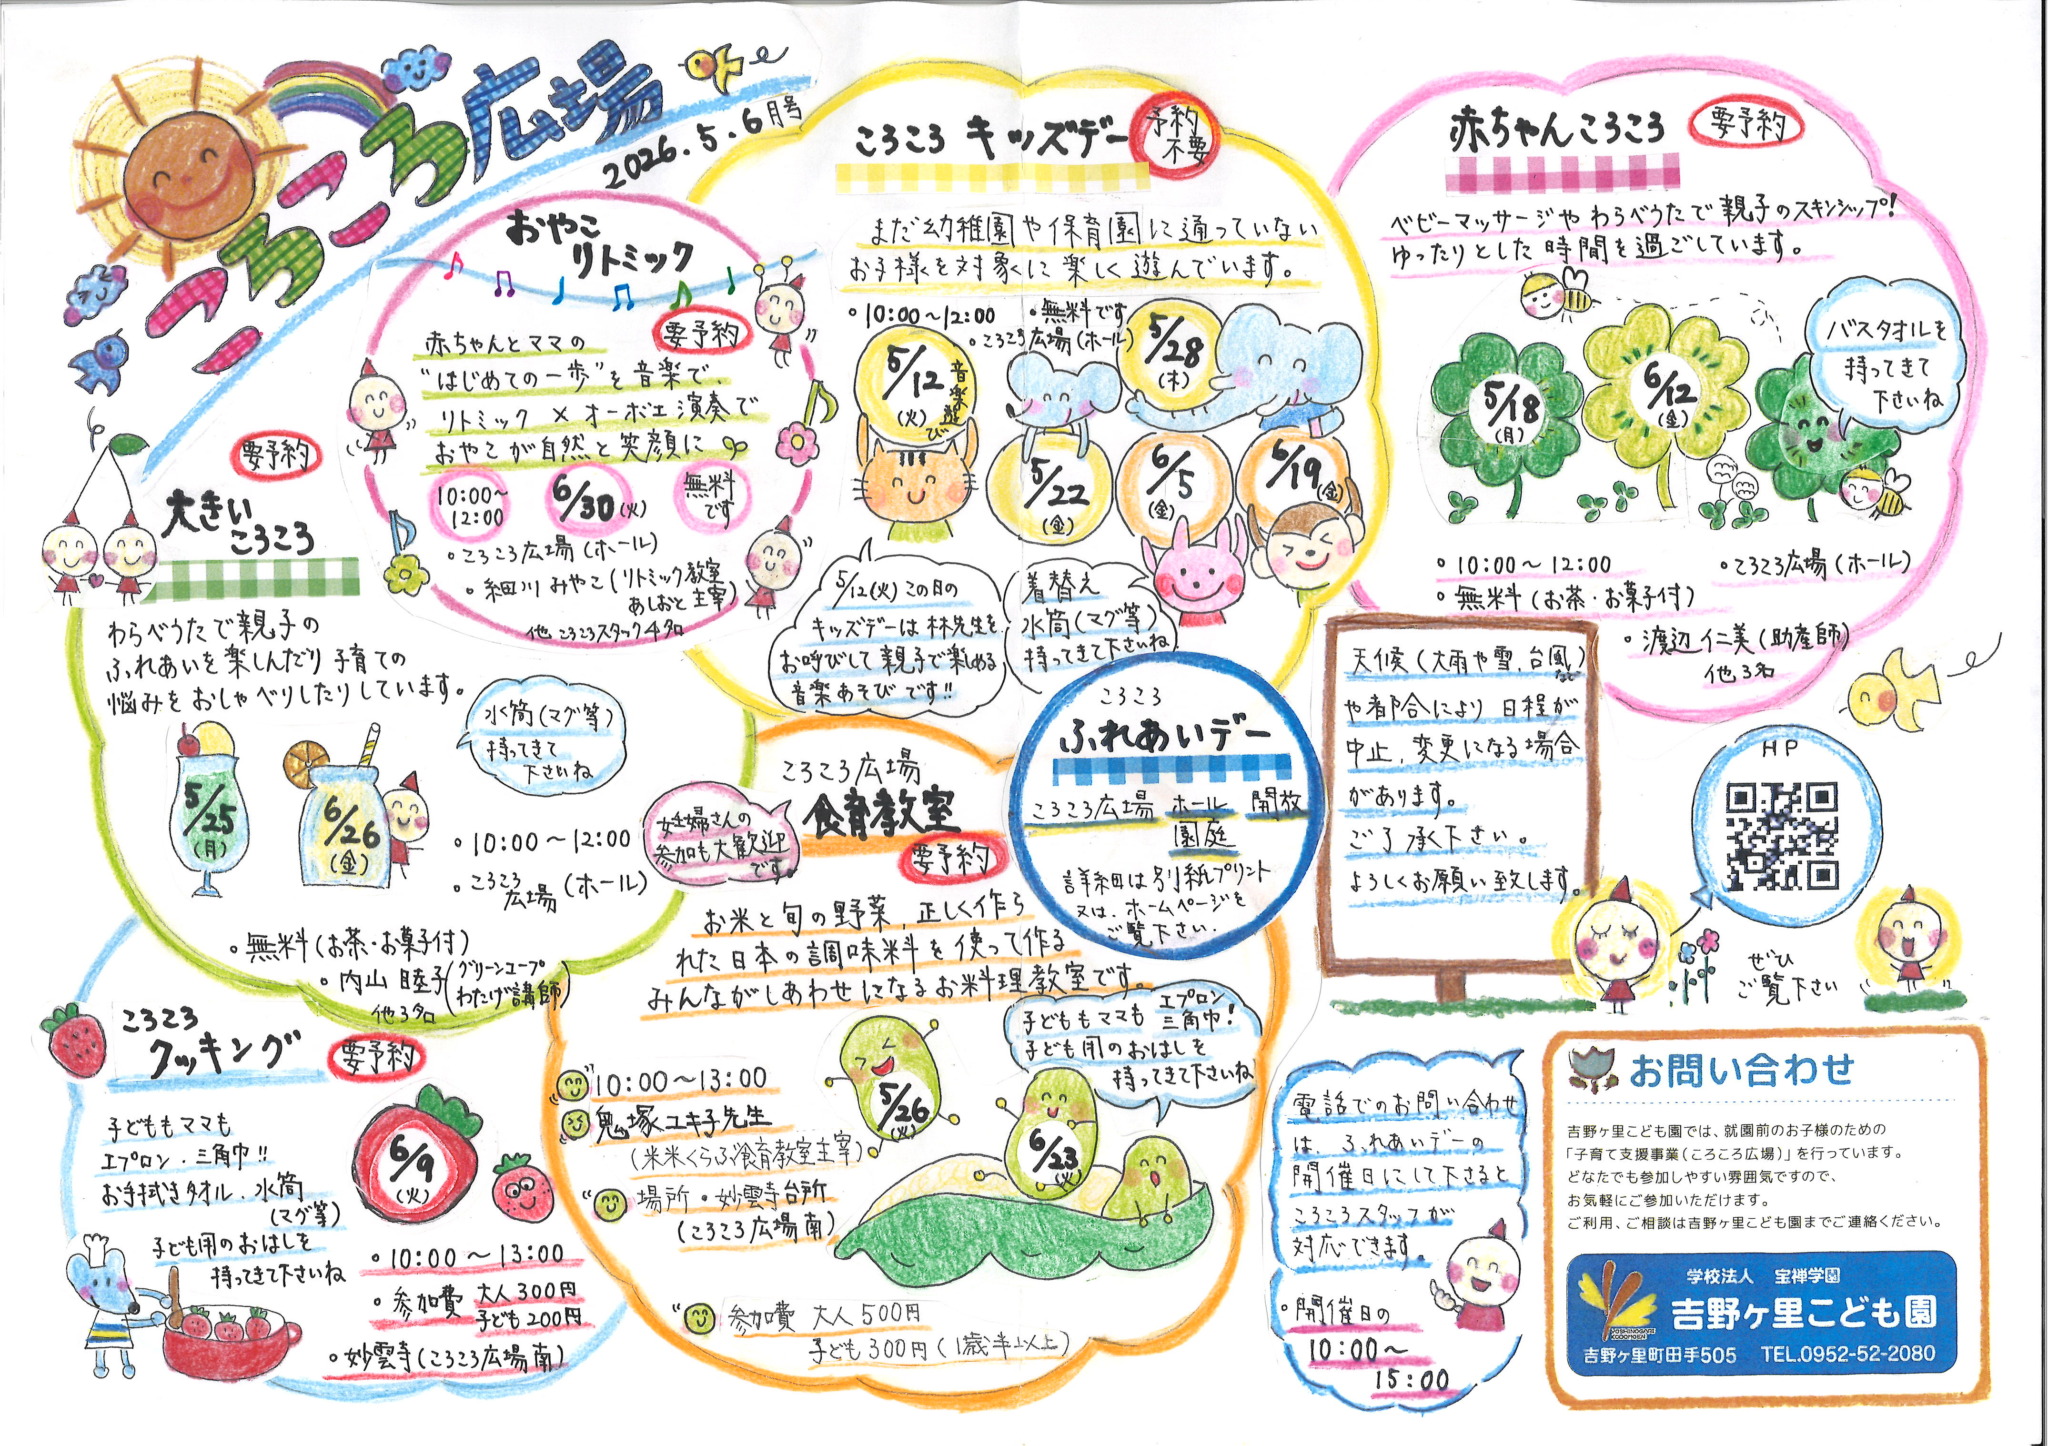 ころころ広場
2026.5.6月号
おやこ
リトミック
要予約
赤ちゃんとママの
"はじめての一歩"を音楽で、
リトミック×オーボエ演奏で
おやこが自然と笑顔に
10:00〜
12:00
6/30(火)
無料
です
・ころころ広場(ホール)
・細川みやこ(リトミック教室
あしおと主宰)
他ころころスタッフ4名
ころころ キッズデー
予約
不要
まだ幼稚園や保育園に通っていない
お子様を対象に楽しく遊んでいます。
・10:00〜12:00
・無料です
・ころころ広場(ホール)
5/12
(火)
音楽遊び
5/28
(木)
5/22
(金)
6/5
(金)
6/19
(金)
5/12(火)この日の
キッズデーは林先生を
お呼びして親子で楽しめる
音楽あそびです!!
着替え
水筒(マグ等)
持ってきて下さいね
赤ちゃんころころ
要予約
ベビーマッサージやわらべうたで親子のスキンシップ!
ゆったりとした時間を過ごしています。
5/18
(月)
6/12
(金)
バスタオルを
持ってきて
下さいね
・10:00〜12:00
・ころころ広場(ホール)
・無料(お茶・お菓子付)
・渡辺仁美(助産師)
他3名
要予約
大きい
ころころ
わらべうたで親子の
ふれあいを楽しんだり子育ての
悩みをおしゃべりしたりしています。
水筒(マグ等)
持ってきて
下さいね
5/25
(月)
6/26
(金)
・10:00〜12:00
・ころころ
広場(ホール)
・無料(お茶・お菓子付)
・内山睦子(グリーンコープ
わたげ講師)
他3名
妊婦さんの
参加も大歓迎
です。
ころころ広場
食育教室
要予約
お米と旬の野菜、正しく作ら
れた日本の調味料を使って作る
みんながしあわせになるお料理教室です。
子どももママもエプロン
三角巾!
子ども用のおはしを
持ってきて下さいね
10:00〜13:00
鬼塚ユキ子先生
(米米くらぶ食育教室主宰)
場所・妙雲寺台所
(ころころ広場南)
5/26
(火)
6/23
(火)
参加費 大人500円
子ども300円(1歳半以上)
ころころ
ふれあいデー
ころころ広場 ホール 開放
園庭
詳細は別紙プリント
又は、ホームページを
ご覧下さい。
天候(大雨や雪、台風など)
や都合により日程が
中止、変更になる場合
があります。
ご了承下さい。
よろしくお願い致します。
HP
ぜひ
ご覧下さい
ころころ
クッキング
要予約
子どももママも
エプロン・三角巾!!
お手拭きタオル、水筒
(マグ等)
子ども用のおはしを
持ってきて下さいね
6/9
(火)
・10:00〜13:00
・参加費 大人300円
子ども200円
・妙雲寺(ころころ広場南)
電話でのお問い合わせ
は、ふれあいデーの
開催日にして下さると
ころころスタッフが
対応できます。
・開催日の
10:00〜
15:00
お問い合わせ
吉野ヶ里こども園では、就園前のお子様のための
「子育て支援事業(ころころ広場)」を行っています。
どなたでも参加しやすい雰囲気ですので、
お気軽にご参加いただけます。
ご利用、ご相談は吉野ヶ里こども園までご連絡ください。
YOSHINOGARI
KODOMOEN
学校法人 宝禅学園
吉野ヶ里こども園
吉野ヶ里町田手505 TEL.0952-52-2080